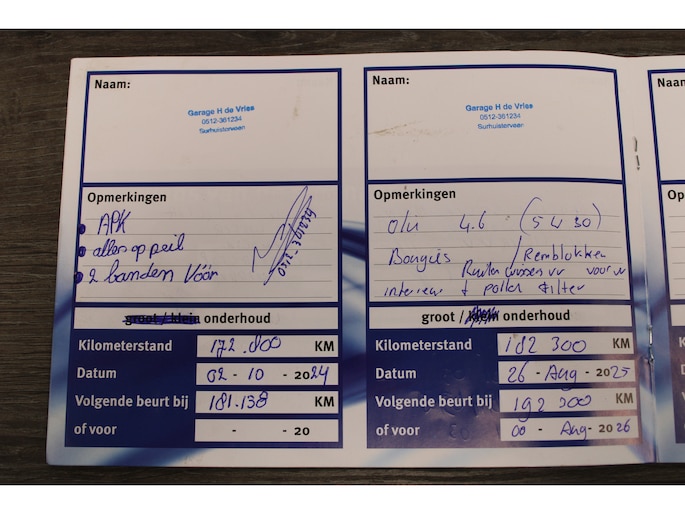 Naam:
Garage H de Vries
0512-361234
Surhuisterveen
Opmerkingen
APK
alles op peil
2 banden Vóór
groot / klein onderhoud
Kilometerstand 172.800 KM
Datum 02 - 10 - 2024
Volgende beurt bij 181.138 KM
of voor - - 20
Naam:
Garage H de Vries
0512-361234
Surhuisterveen
Opmerkingen
Olie 4.6 (5W30)
Bougies / Remblokken
Ruitenwissers voor
interieur + pollen filter
groot / klein onderhoud
Kilometerstand 182 300 KM
Datum 26 - Aug - 2025
Volgende beurt bij 192 300 KM
of voor 00 - Aug - 2026
Naam
Op
K
D
V
o